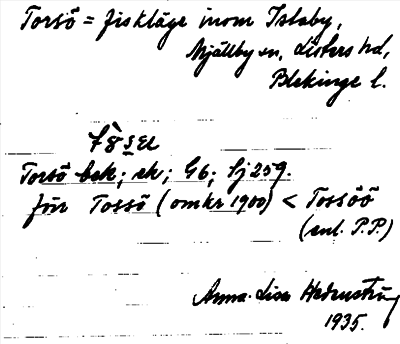 Torsö = fiskläge inom Istaby,
Mjällby sn, Listers hd,
Blekinge l.
Torsö bek; ek; G6; Sj 259.
förr Tossö (omkr 1900) < Tossöö
(enl. P.P)
Anna-Lisa Hedenström
1935.